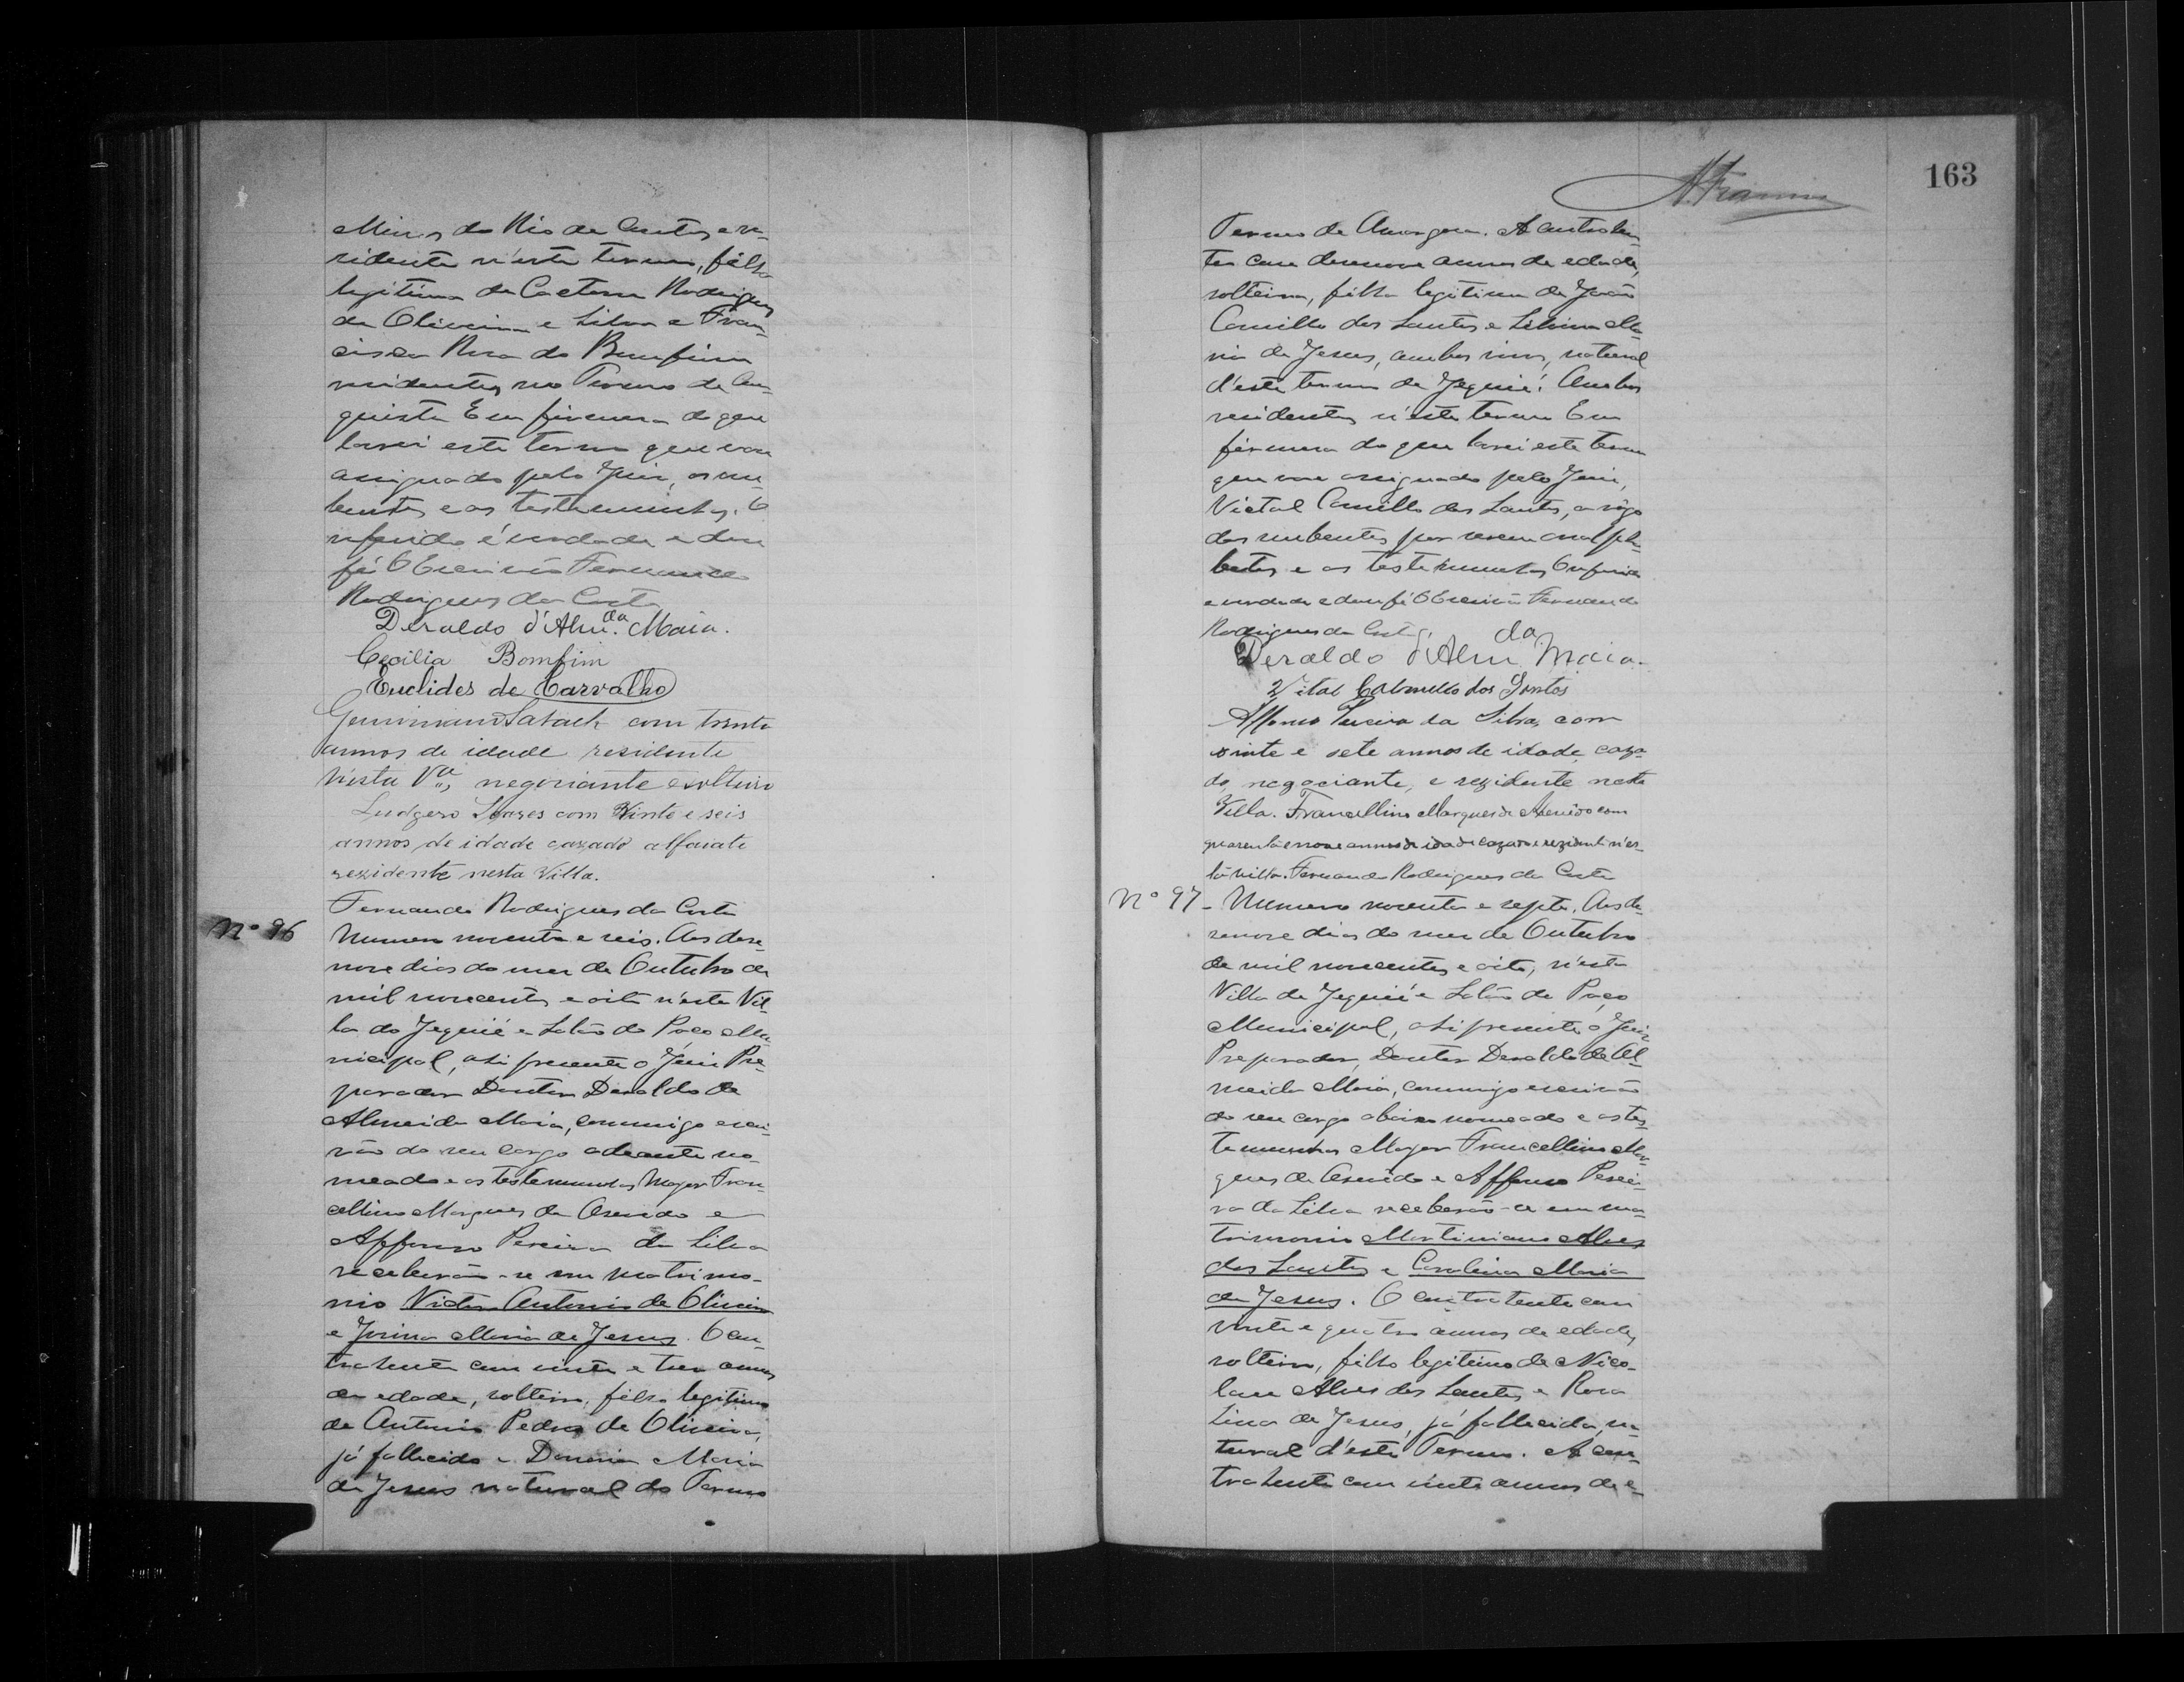 Minas do Rio de Contas e re-
sidente n'este termo, filha
legitima de Caetano Rodrigues
de Oliveira e Silva e Fran-
cisca Rosa do Bomfim
residentes no Termo de Con-
quista Em firmeza do que
lavrei este termo que vae
assignado pelo Juiz, os nu-
bentes e as testemunhas. O
referido é verdade e dou
fé O Escrivão Fernando
Rodrigues da Costa
Deraldo d'Alm.da Maia.
Cecilia Bomfim
Euclides de Carvalho
com trinta
annos de idade residente
nesta Vª, negociante e solteiro
Ludgero Soares com Vinte e seis
annos de idade cazado alfaiate
rezidente nesta Villa.
Fernando Rodrigues da Costa
Nº 96 Numero noventa e seis. Aos deze-
nove dias do mez de Outubro de
mil novecentos e oito n'esta Vil-
la do Jequié e Salão do Paço Mu-
nicipal, ahi presente o Juiz Pre-
parador Doutor Deraldo de
Almeida Maia, commigo escri-
vão do seu cargo adeante no-
meado e as testemunhas Major Fran-
cellino Marques de Asevido e
Affonso Pereira da Silva
receberão-se em matrimo-
nio Victor Antonio de Oliveira
e Maria de Jesus. O con-
trahente com vinte e tres annos
de edade, solteiro, filho legitimo
de Antonio Pedro de Oliveira,
já fallecido e Maria
de Jesus natural do Termo
163
Termo de Amargosa. A contrahen-
te com desenove annos de edade,
solteira, filha legitima de João
Camillo dos Santos e Silvina Ma-
ria de Jesus, ambos vivos, natural
d'este termo de Jequié. Ambos
residentes n'este termo Em
firmeza do que lavrei este termo
que vae assignado pelo Juiz,
Victal Camillo dos Santos, a rogo
dos nubentes por serem analpha-
betos e as testemunhas O referido
e verdade e dou fé O Escrivão Fernando
Rodrigues da Costa.
Deraldo d'Alm.da Maia.
Vital Camillo dos Santos
Affonso Pereira da Silva, com
vinte e sete annos de idade, caza-
do, negociante, e rezidente nesta
Villa. Francellino Marques de Asevido com
quarenta e nove annos de idade cazado e rezidente n'es-
ta villa. Fernando Rodrigues da Costa
Nº 97 - Numero noventa e septe. Aos de-
senove dias do mez de Outubro
de mil novecentos e oito, n'esta
Villa de Jequié e Salão do Paço
Municipal, ahi presente o Juiz
Preparador, Doutor Deraldo de Al-
meida Maia, commigo escrivão
do seu cargo abaixo nomeado e as tes-
temunhas Major Francellino Mar-
ques de Asevido e Affonso Perei-
ra da Silva receberão-se em ma-
trimonio Martiniano Alves
dos Santos e Carolina Maria
de Jesus. O contrahente com
vinte e quatro annos de edade,
solteiro, filho legitimo de Nico-
lau Alves dos Santos e Rosa
Lina de Jesus, já fallecida, na-
tural d'este Termo. A con-
trahente com vinte annos de e-